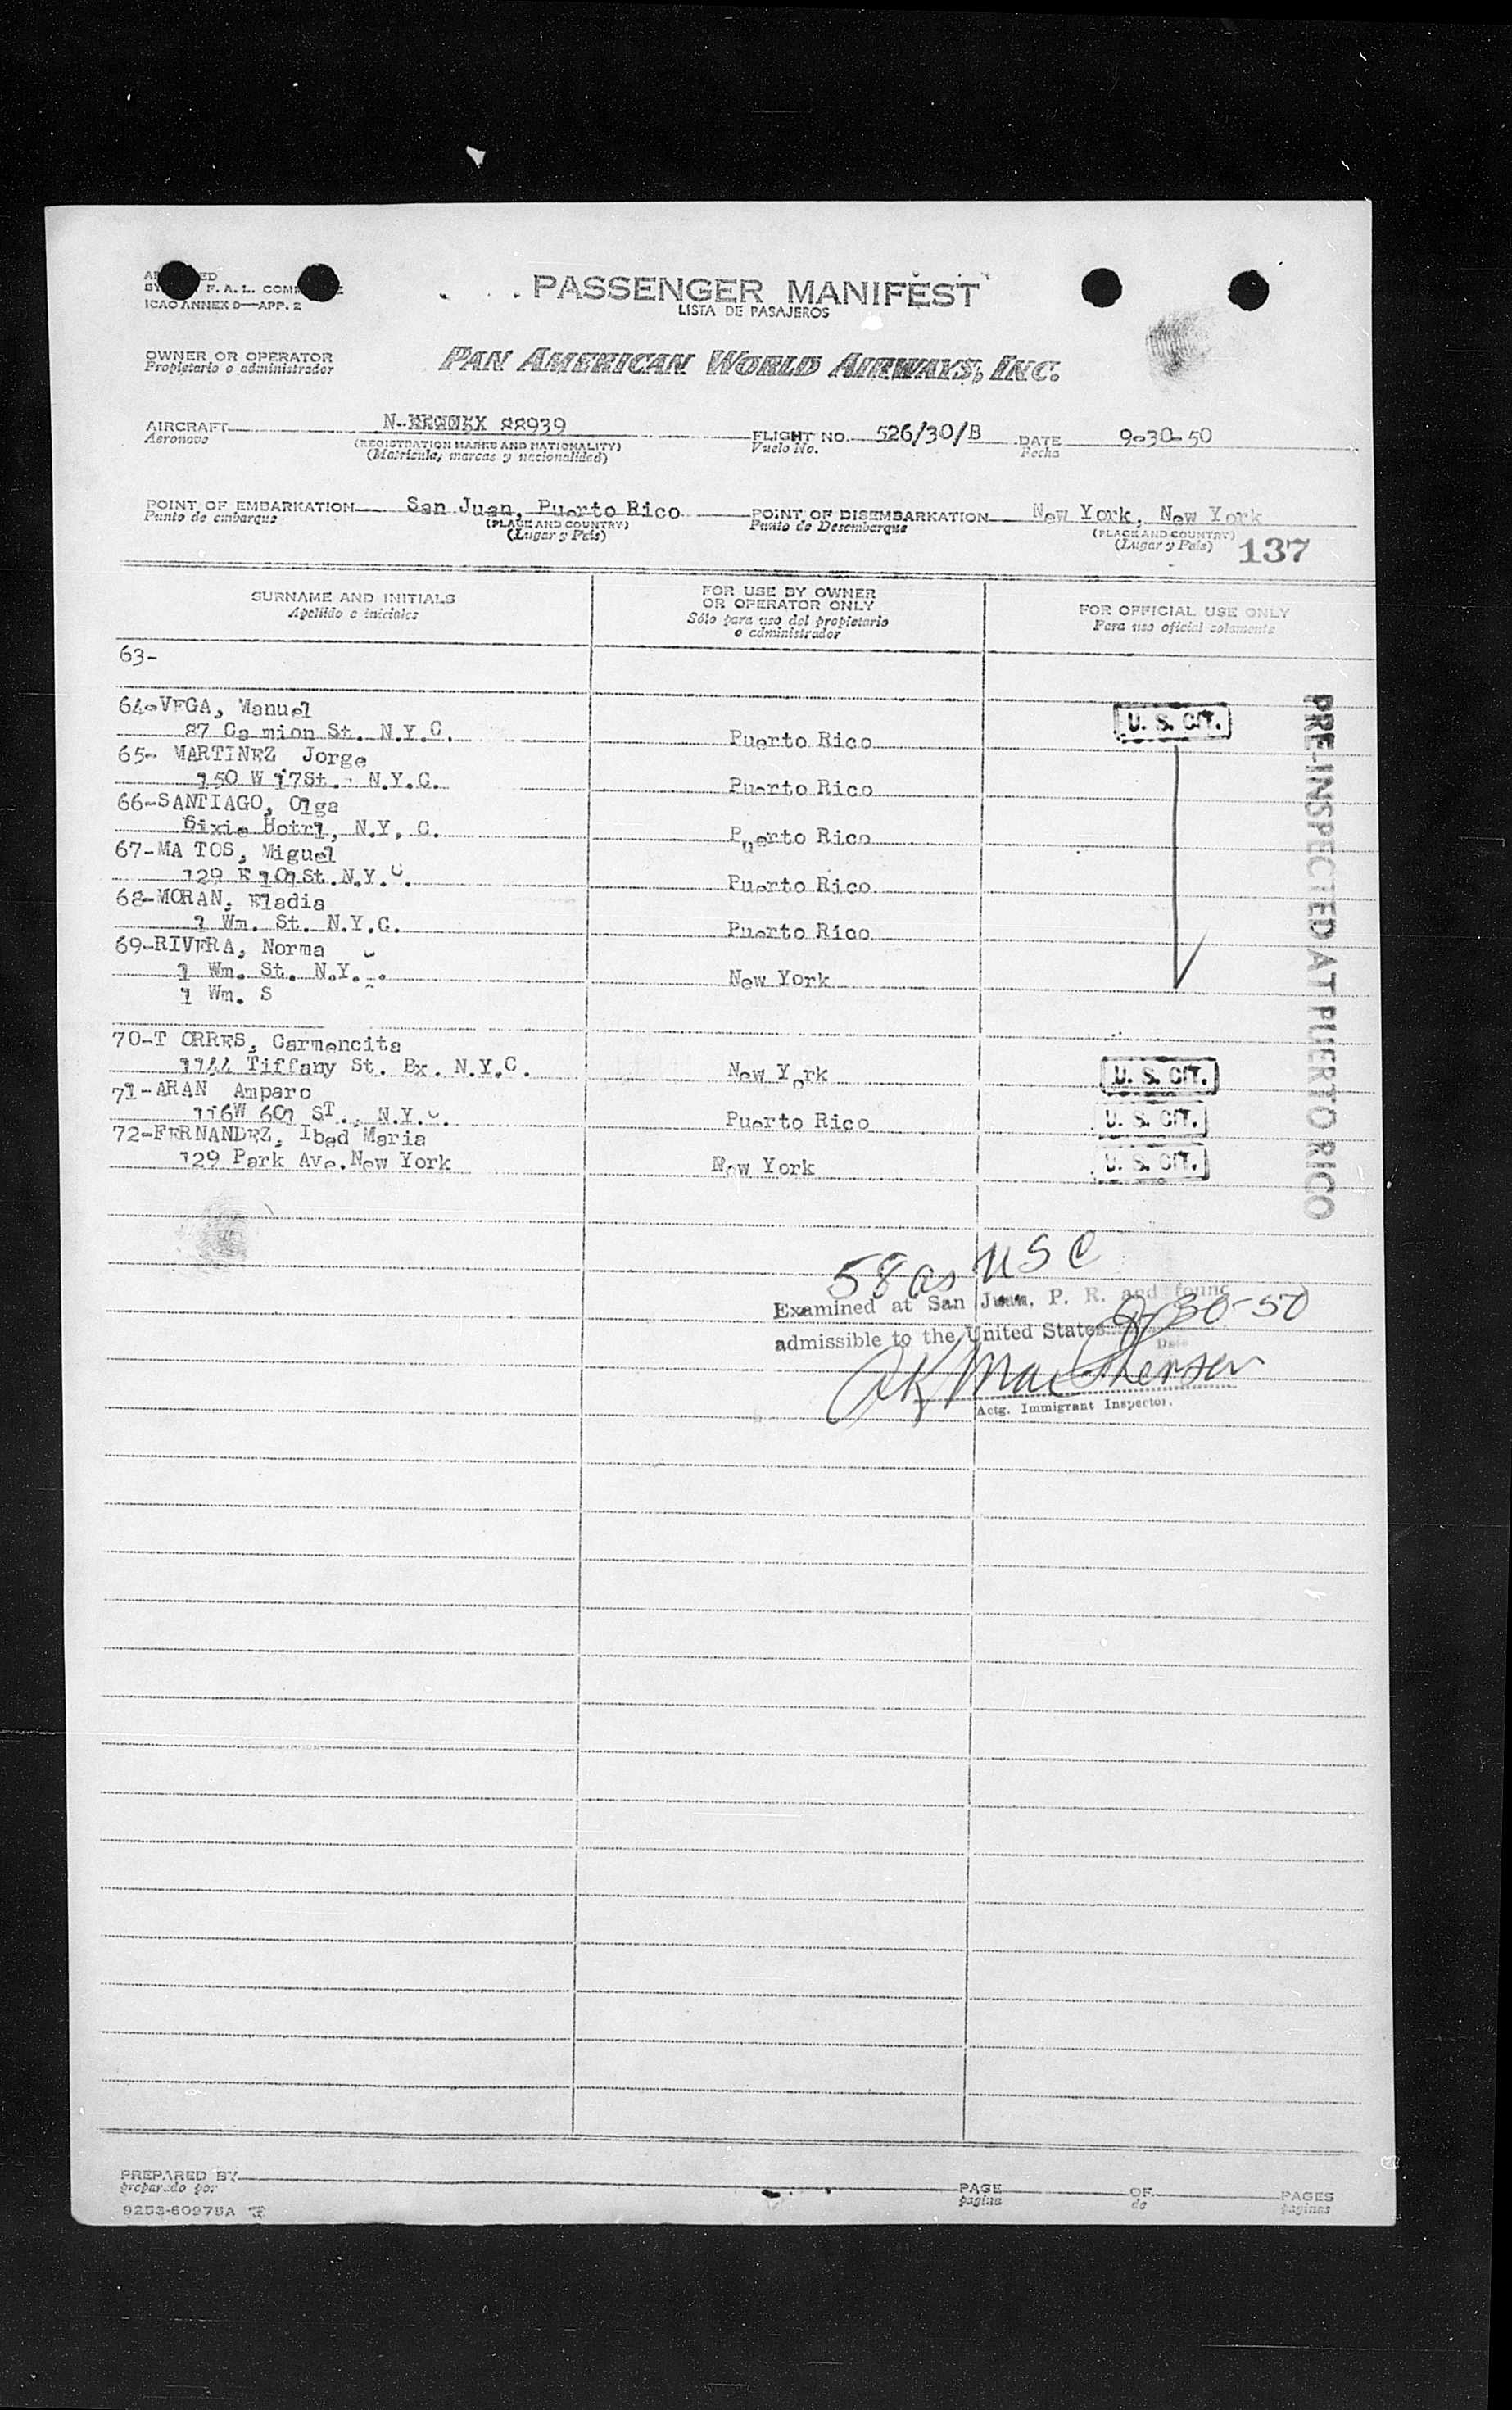 PASSENGER MANIFEST
LISTA DE PASAJEROS
BY F. A. L. COMM
ICAO ANNEX 9—APP. 2
OWNER OR OPERATOR
Propietario o administrador
PAN AMERICAN WORLD AIRWAYS, INC.
AIRCRAFT N- 88939 FLIGHT NO. 526/30/B DATE 9-30-50
Aeronave (REGISTRATION MARKS AND NATIONALITY) Vuelo No. Fecha
(Matricula, marcas y nacionalidad)
POINT OF EMBARKATION San Juan, Puerto Rico POINT OF DISEMBARKATION New York, New York
Punto de embarque (PLACE AND COUNTRY) Punto de Desembarque (PLACE AND COUNTRY)
(Lugar y País) (Lugar y País) 137
SURNAME AND INITIALS
Apellido e iniciales
FOR USE BY OWNER
OR OPERATOR ONLY
Sólo para uso del propietario
o administrador
FOR OFFICIAL USE ONLY
Para uso oficial solamente
63-
64-VEGA, Manuel
87 St. N.Y.C. Puerto Rico U. S. CIT.
65- MARTINEZ Jorge
150 W 17St. N.Y.C. Puerto Rico
66-SANTIAGO, Olga
Dixie Hotrl, N.Y. C. Puerto Rico
67-MA TOS, Miguel
129 E 101St.N.Y.C. Puerto Rico
68-MORAN, Eladia
1 Wm. St. N.Y.C. Puerto Rico
69-RIVERA, Norma
1 Wm. St. N.Y. . New York
1 Wm. S
70-T ORRES, Carmencita
1144 Tiffany St. Bx. N.Y.C. New York U. S. CIT.
71-ARAN Amparo
116W 601 ST., N.Y.C. Puerto Rico U. S. CIT.
72-FERNANDEZ, Ibed Maria
129 Park Ave.New York New York U. S. CIT.
PRE-INSPECTED AT PUERTO RICO
58 as USC
Examined at San Juan, P. R. and found
admissible to the United States 9-30-50
Date
AK MacPherson
Actg. Immigrant Inspector.
PREPARED BY PAGE OF PAGES
preparado por pagina de paginas
9253-60975A